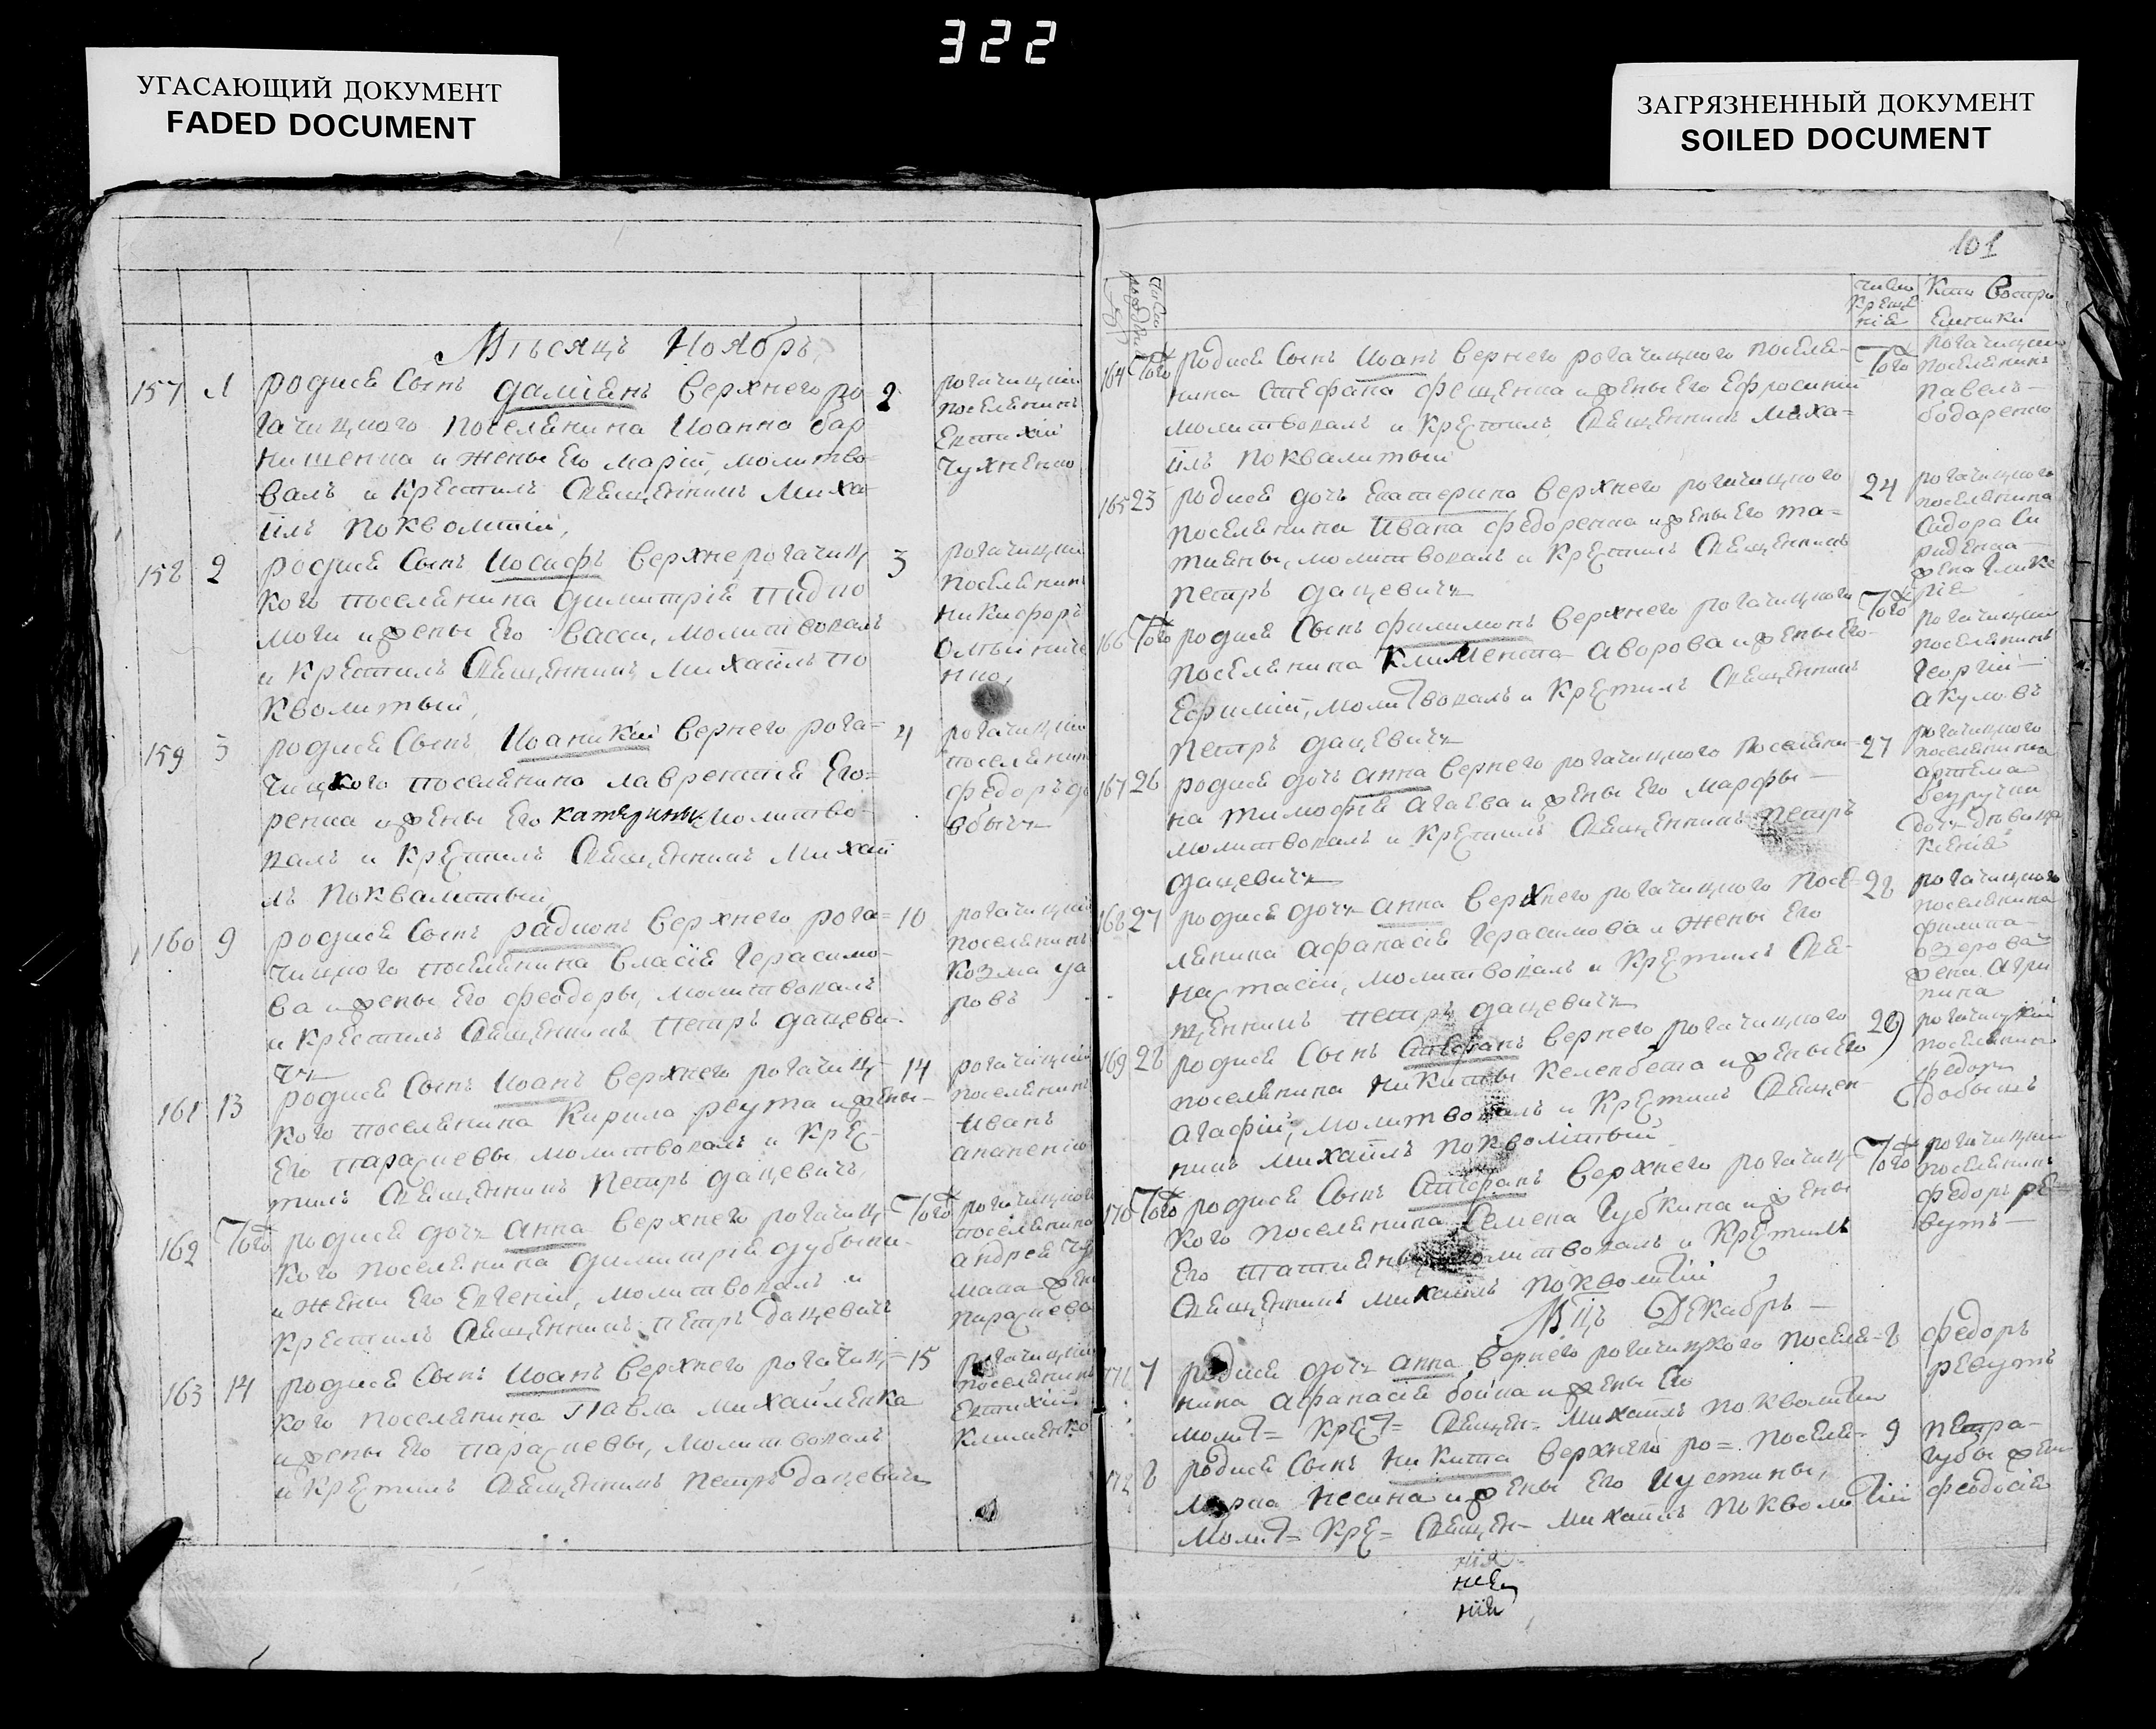 322
УГАСАЮЩИЙ ДОКУМЕНТ
FADED DOCUMENT
ЗАГРЯЗНЕННЫЙ ДОКУМЕНТ
SOILED DOCUMENT
Мѣсяцъ Ноябрь
157 1 родися Сынъ Даміянъ Верхнего ро 2
гачицкого поселянина Иоанна бар
нишенка и жены Его Маріи, молитво
валъ и Крестилъ Священникъ Миха
илъ
рогачицкій
поселянинъ
Евтихій
чухненко
158 2 родися Сынъ Иосафъ Верхнерогачиц 3
кого поселянина Димитрія пидпо
моги и жены Его Васси, молитвовалъ
и Крестилъ Священникъ Михаилъ по
кволитый,
рогачицкій
поселянинъ
Никифоръ
159 3 родися Сынъ Иоаникій Вернего рога= 4
чицкого поселянина Лаврентія Его=
ренка и жены Его катерины молитво
валъ и Крестилъ Священникъ Михаи
лъ
рогачицкій
поселянинъ
федоръ
160 9 родися Сынъ радионъ Верхнего рога= 10
чицкого поселянина Власія Герасимо
ва и жены Его феодоры, молитвовалъ
и Крестилъ Священникъ петръ дацеви
чъ
рогачицкій
поселянинъ
Козма
161 13 родися Сынъ Иоанъ Верхнего рогачиц 14
кого поселянина Кирила реута и жены
Его параскевы, молитвовалъ и Крес
тилъ Священникъ Петръ дацевичъ
рогачицкій
поселянинъ
Иванъ
ананенко
162 Того родися дочь анна Верхнего рогачиц Того
кого поселянина Димитрія
и жены Его Евгеніи, молитвовалъ и
Крестилъ Священникъ петръ Дацевичъ
рогачицкого
поселянина
андрея
параскева
163 14 родися Сынъ Иоанъ Верхнего рогачиц= 15
кого поселянина Павла Михайленка
и жены Его параскевы, молитвовалъ
и Крестилъ Священникъ петръ Дацевичъ
рогачицкій
поселянинъ
Евтихій
Клименко
101
число
рожденія
число
Креще
нія
Кто Воспри
емники
164 Того родися Сынъ Иоанъ Вернего рогачицкого поселя= Того
нина Стефана фещенка и жены Его Ефросиніи
молитвовалъ и Крестилъ Священникъ Миха=
илъ
рогачицкій
поселянинъ
павелъ
бодаренко
165 23 родися дочь Екатерина Верхнего рогачицкого 24
поселянина Ивана федоренка и жены Его та=
тияны, молитвовалъ и Крестилъ Священникъ
петръ дацевичъ
рогачицкого
поселянина
Сидора Си
риденка
жена Глике
рія
166 Того родися Сынъ филимонъ Верхнего рогачицкого Того
поселянина Климента Аворова и жены Его
Ефиміи, молитвовалъ и Крестилъ Священникъ
петръ дацевичъ
рогачицкій
поселянинъ
георгій
акуловъ
167 26 родися дочь анна Вернего рогачицкого поселяни= 27
на тимофія Агаева и жены Его Марфы
молитвовалъ и Крестилъ Священникъ петръ
дацевичъ
рогачицкого
поселянина
артема
дочь дѣвица
168 27 родися дочь анна Верхнего рогачицкого посе= 28
лянина афанасія Герасимова и жены Его
настасіи, молитвовалъ и Крестилъ Свя=
щенникъ петръ дацевичъ
рогачицкого
поселянина
филипа
озерова
жена Агри
пина
169 28 родися Сынъ Стефанъ Вернего рогачицкого 29
поселянина Никиты Келепбета и жены Его
агафіи, молитвовалъ и Крестилъ Священ=
никъ михаилъ покволитый
рогачицкій
поселянинъ
федоръ
170 Того родися Сынъ Стефанъ Верхнего рогачиц= Того
кого поселянина Семена Губкина и жены
Его татияны, молитвовалъ и Крестилъ
Священникъ михаилъ покволитій
рогачицкій
поселянинъ
федоръ ре
вутъ
Мцъ Декабрь
171 7 родися дочь анна Вернего рогачицкого поселя= 8
нина афанасія бойка и жены Его
молит= Крест= Священ= Михаилъ покволитій
федоръ
ревутъ
172 8 родися Сынъ Никита Верхнего ро= поселя= 9
Марка песина и жены Его Иустины,
Молит= Кре= Священ= михаилъ покволитій
петра
губы жена
феодосія
нія